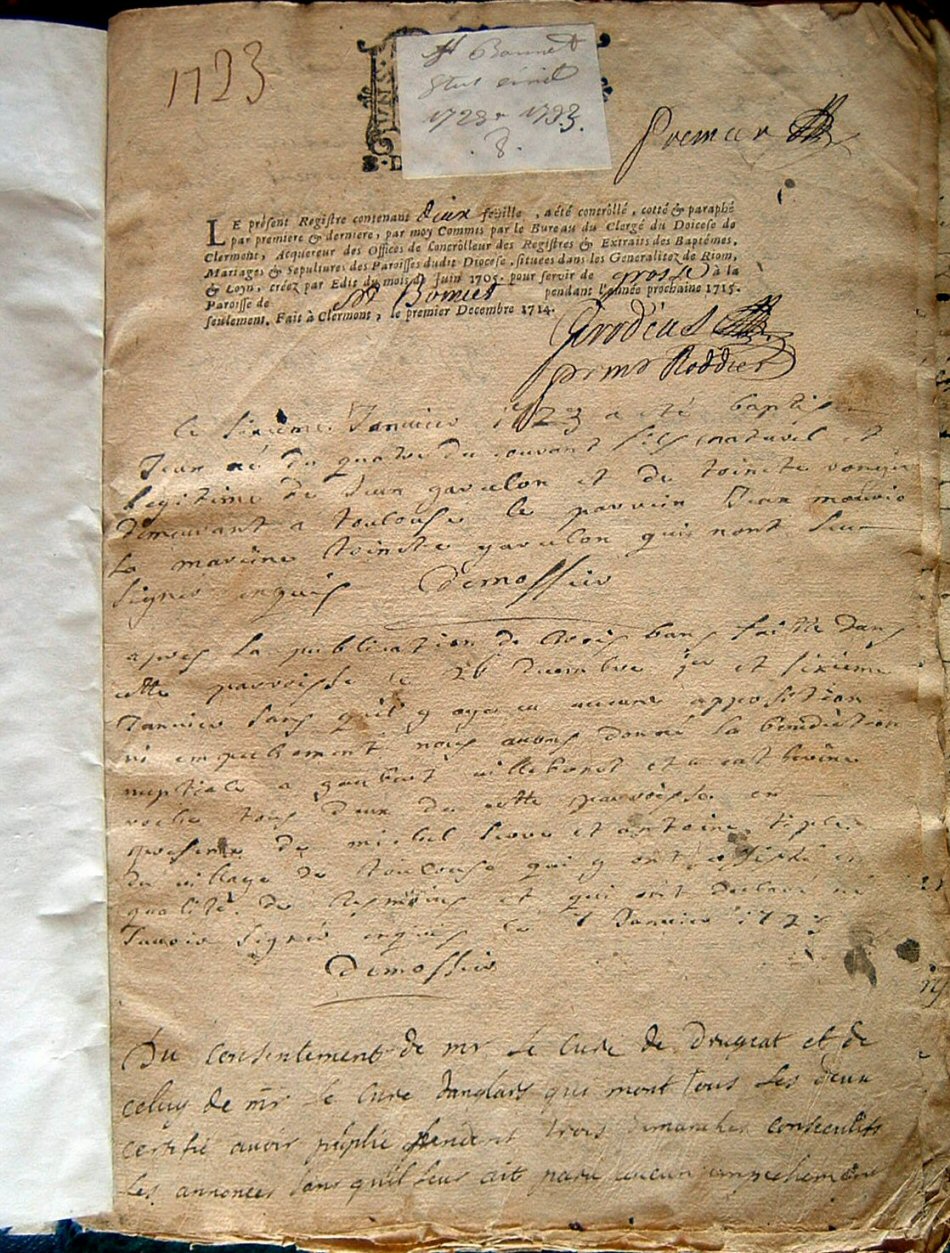 1723
St Bonnet
Etat civil
1723 1733.
. 8 .
premier
LE présent Registre contenant deux feuille, a été contrôllé, cotté & paraphé
par premiere & derniere, par moy Commis par le Bureau du Clergé du Diocese de
Clermont, Acquereur des Offices de Concrôlleur des Registres & Extraits des Baptêmes,
Mariages & Sepultures des Paroisses dudit Diocese, situées dans les Generalitez de Riom,
& Lyon, créez par Edit du mois de Juin 1705. pour servir de grosse à la
Paroisse de St Bonnet pendant l'année prochaine 1715.
seulement. Fait à Clermont, le premier Decembre 1714.
Roddier
le sixieme Janvier 1723 a eté baptisé
Jean né du quatre du courant fils naturel et
legitime de Jean gavelon et de toinete
demeurant a toulouse le parrein Jean
la mareine toinete gavelon qui nont sceu
signer enquis Demossier
apres la publication de trois bans faitte dans
cette parroisse le 26 decembre 1er et sixieme
Janvier sans qu'il y aye eu aucune apposition
ni empechement nous avons donné la benediction
nuptiale a et a catherine
tous deux de cette parroisse en
presence de michel et antoine
du village de qui y ont assisté en
qualité de tesmoins et qui ont declaré ne
scavoir signer enquis le 6 Janvier 1723
Demossier
Du consentement de mr le curé de drugeat et de
celuy de mr le curé danglars qui mont tous les deux
certifié avoir publié pendent trois dimanches consecutifs
les annonces sans quil leur ait paru aucun empechement